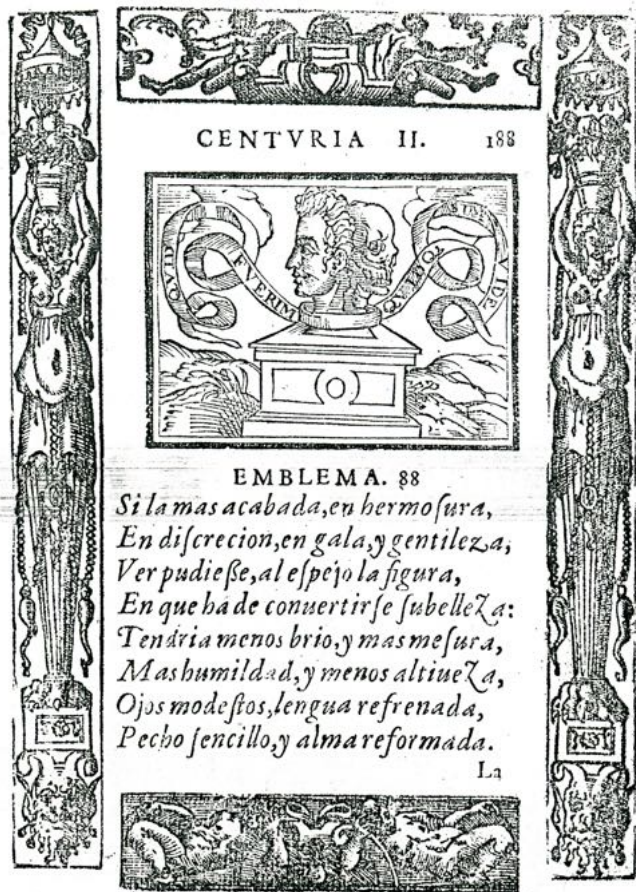 CENTVRIA II. 188
FVERIM
EMBLEMA. 88
Si la mas acabada, en hermoſura,
En diſcrecion, en gala, y gentileza,
Ver pudieße, al eſpejo la figura,
En que ha de conuertirſe ſubelleza:
Tendria menos brio, y mas meſura,
Mas humildad, y menos altiueza,
Ojos modeſtos, lengua refrenada,
Pecho ſencillo, y alma reformada.
La